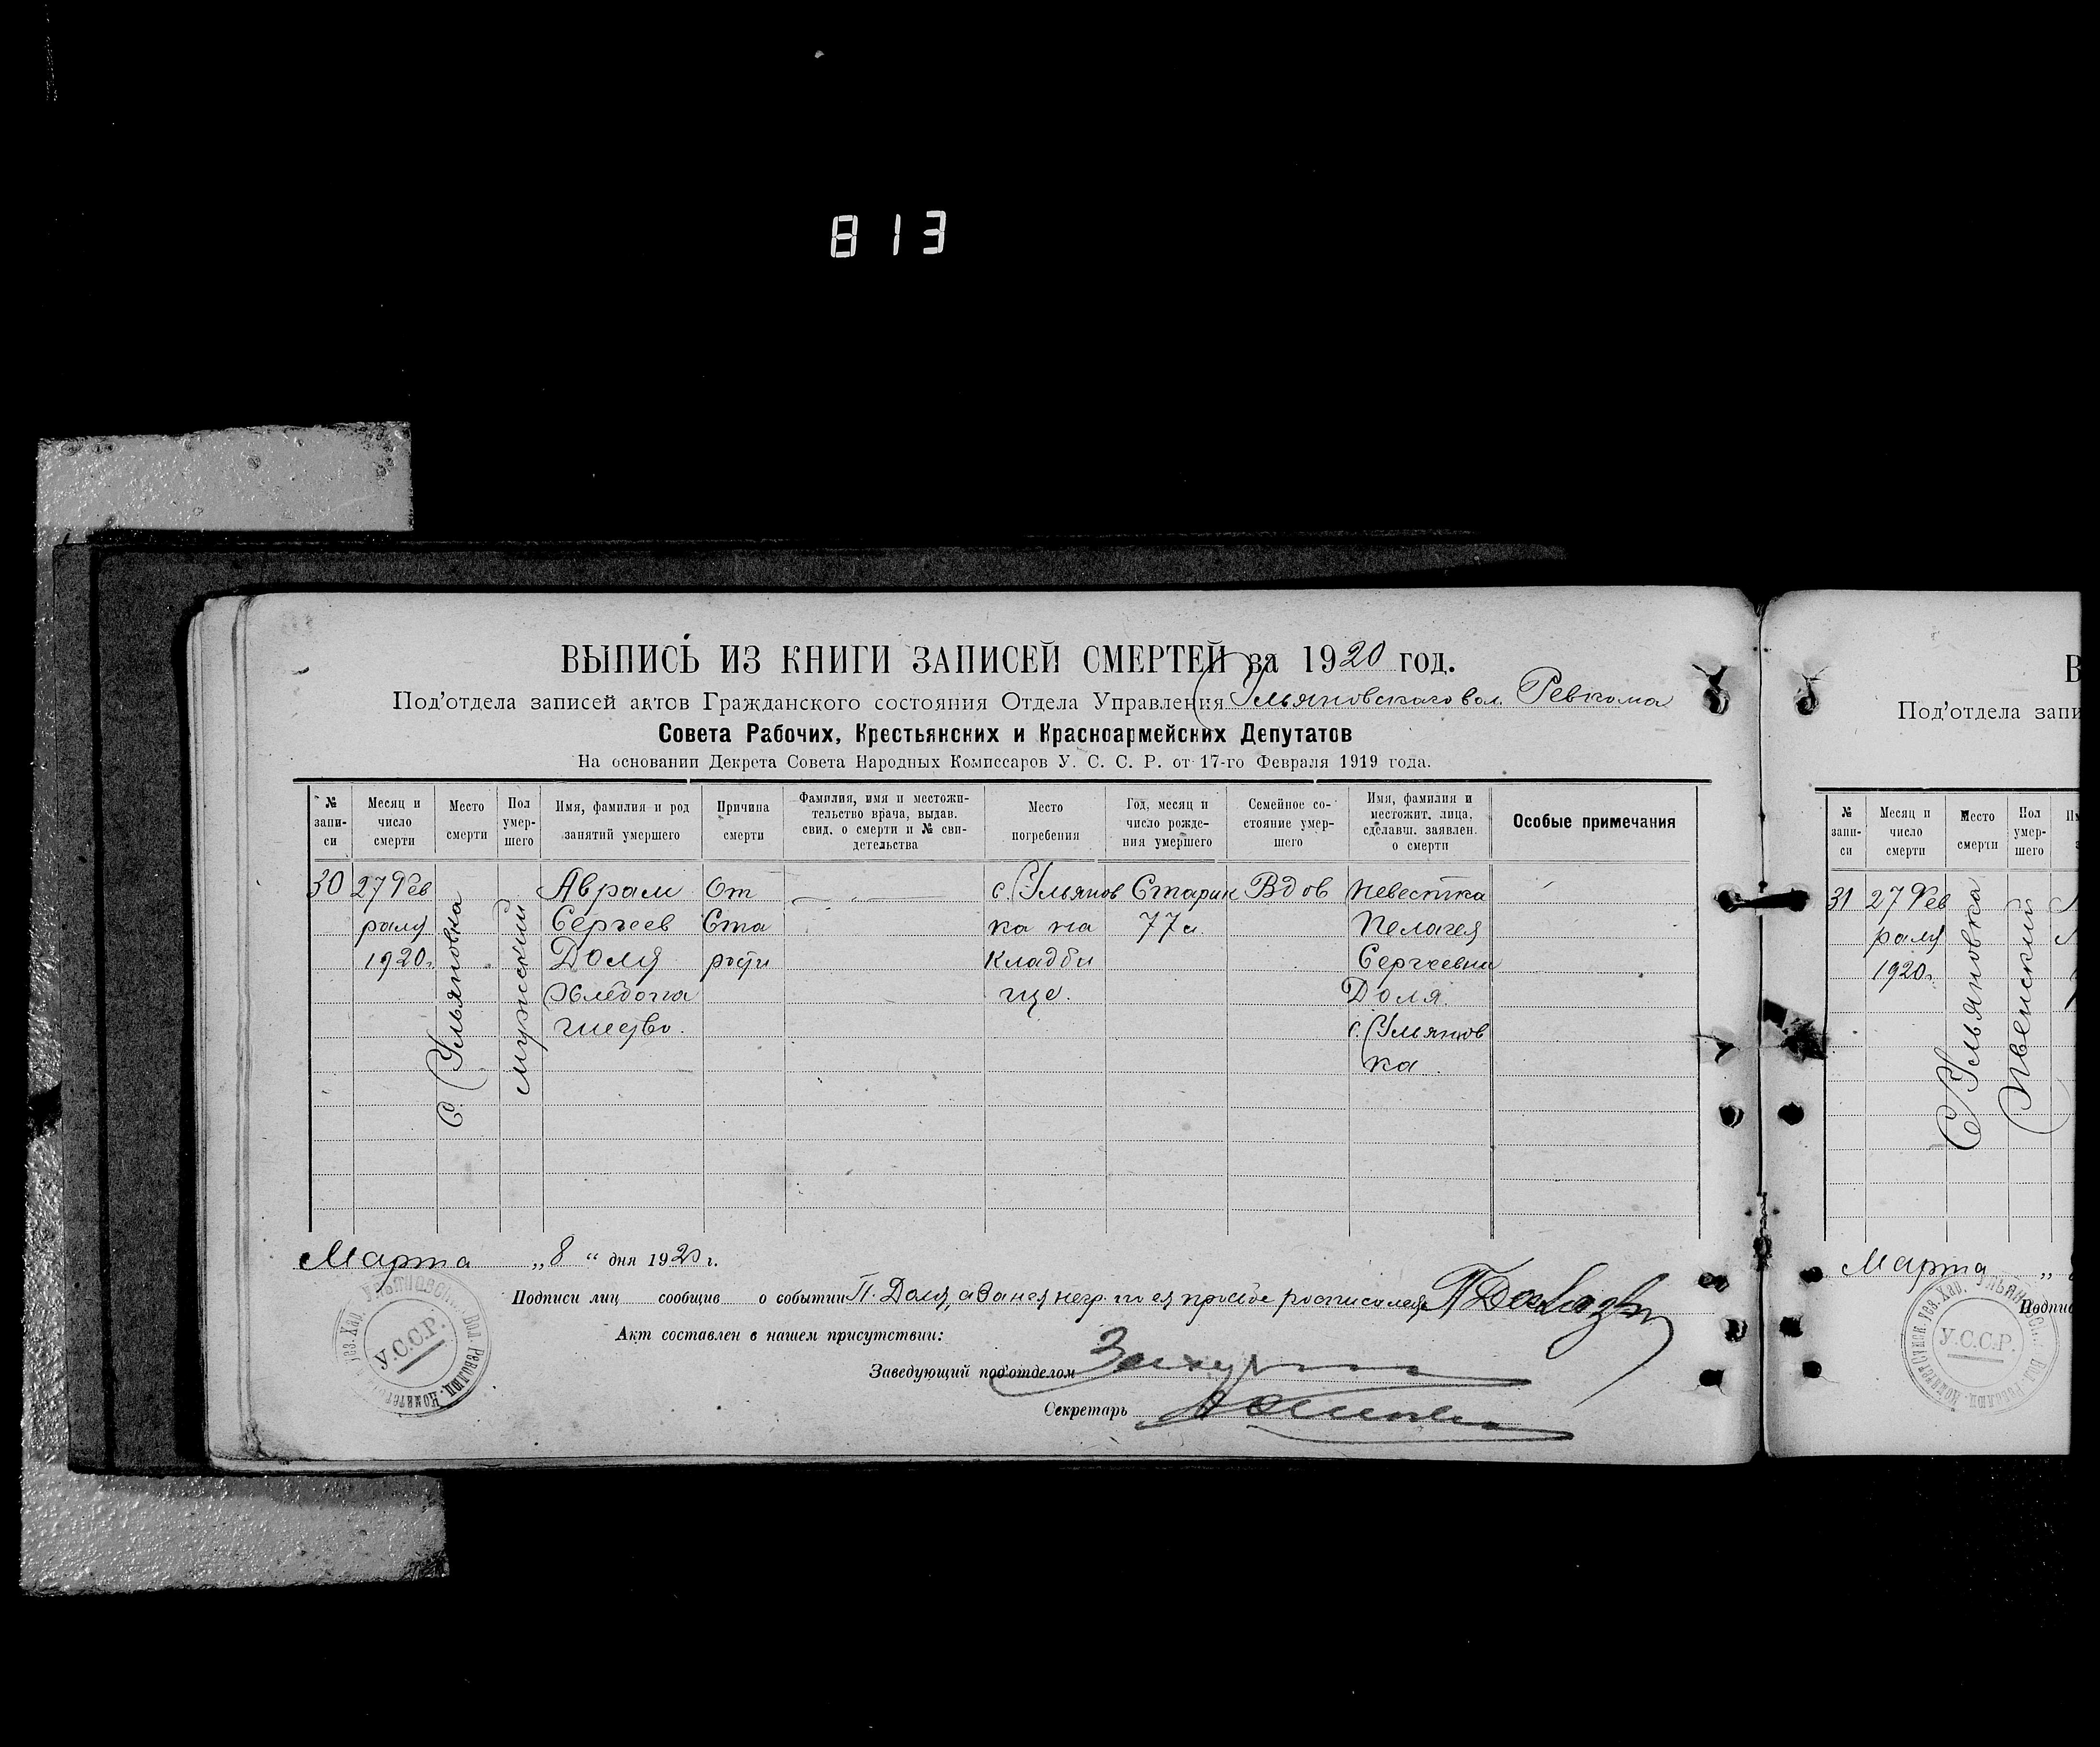 813
ВЫПИСЬ ИЗ КНИГИ ЗАПИСЕЙ СМЕРТЕЙ за 1920 год.
Под'отдела записей актов Гражданского состояния Отдела Управления Ульяновскаго вол. Ревкома
Совета Рабочих, Крестьянских и Красноармейских Депутатов
На основании Декрета Совета Народных Комиссаров У. С. С. Р. от 17-го Февраля 1919 года.
№ запи-си
Месяц и число смерти
Место смерти
Пол умер-шего
Имя, фамилия и род занятий умершего
Причина смерти
Фамилия, имя и местожи-тельство врача, выдав. свид. о смерти и № сви-детельства
Место погребения
Год, месяц и число рожде-ния умершего
Семейное со-стояние умер-шего
Имя, фамилия и местожит. лица, сделавш. заявлен. о смерти
Особые примечания
30
27 Фев
раля
1920г.
с. Ульяновка
мужский
Аврам
Сергеев
Доля
Хлебопа
шество.
От
Ста
рости
с. Ульянов
ка на
кладби
ще.
Старик
77 л
Вдов
Невестка
Пелагея
Сергеевна
Доля
с. Ульянов
ка
Марта „8“ дня 1920 г.
Подписи лиц сообщив о событии П. Доля, а за нея негр. по ея просьбе росписался
Акт составлен в нашем присутствии:
Заведующий под'отделом
Секретарь
У.С.С.Р.
В
Под'отдела запи
№ запи-си
Месяц и число смерти
Место смерти
Пол умер-шего
31
27 Фев
раля
1920г.
с Ульяновка
Женский
Марта „
Подпис
У.С.С.Р.